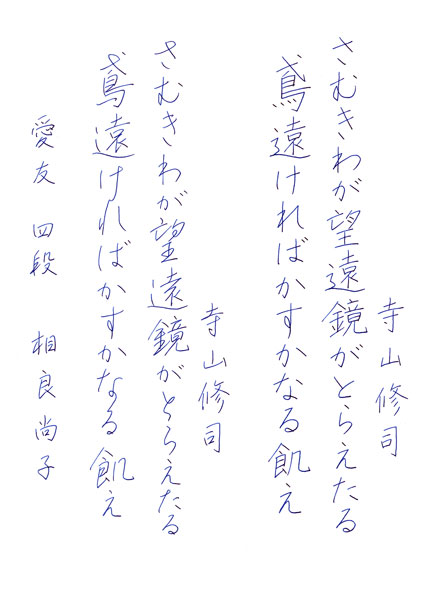 寺山修司
さむきわが望遠鏡がとらえたる
鳶遠ければかすかなる飢え
寺山修司
さむきわが望遠鏡がとらえたる
鳶遠ければかすかなる飢え
愛友 四段 相良尚子